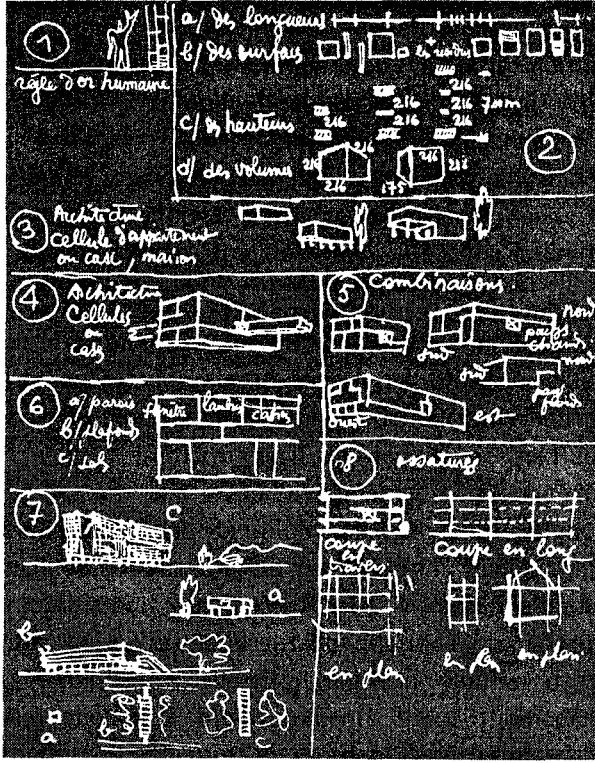 1
règle d'or humaine
a/ des longueurs
b/ des surfaces
c/ des hauteurs
216 216 216 7 00m
216 216 216
d/ des volumes
216 216 216 216
216 175
2
3
Architecture
cellule d'appartement
ou case, maison
4
Architecture
Cellules
ou
cases
5
Combinaisons.
nord
pays
chauds
sud
sud nord
pays
froids
ouest
est
6
a/ parois
b/ plafonds
c/ sols
fenêtre
7
C
a
b
a
b
c
8
ossatures
coupe
en
travers
coupe en long
en plan
en plan
en plan